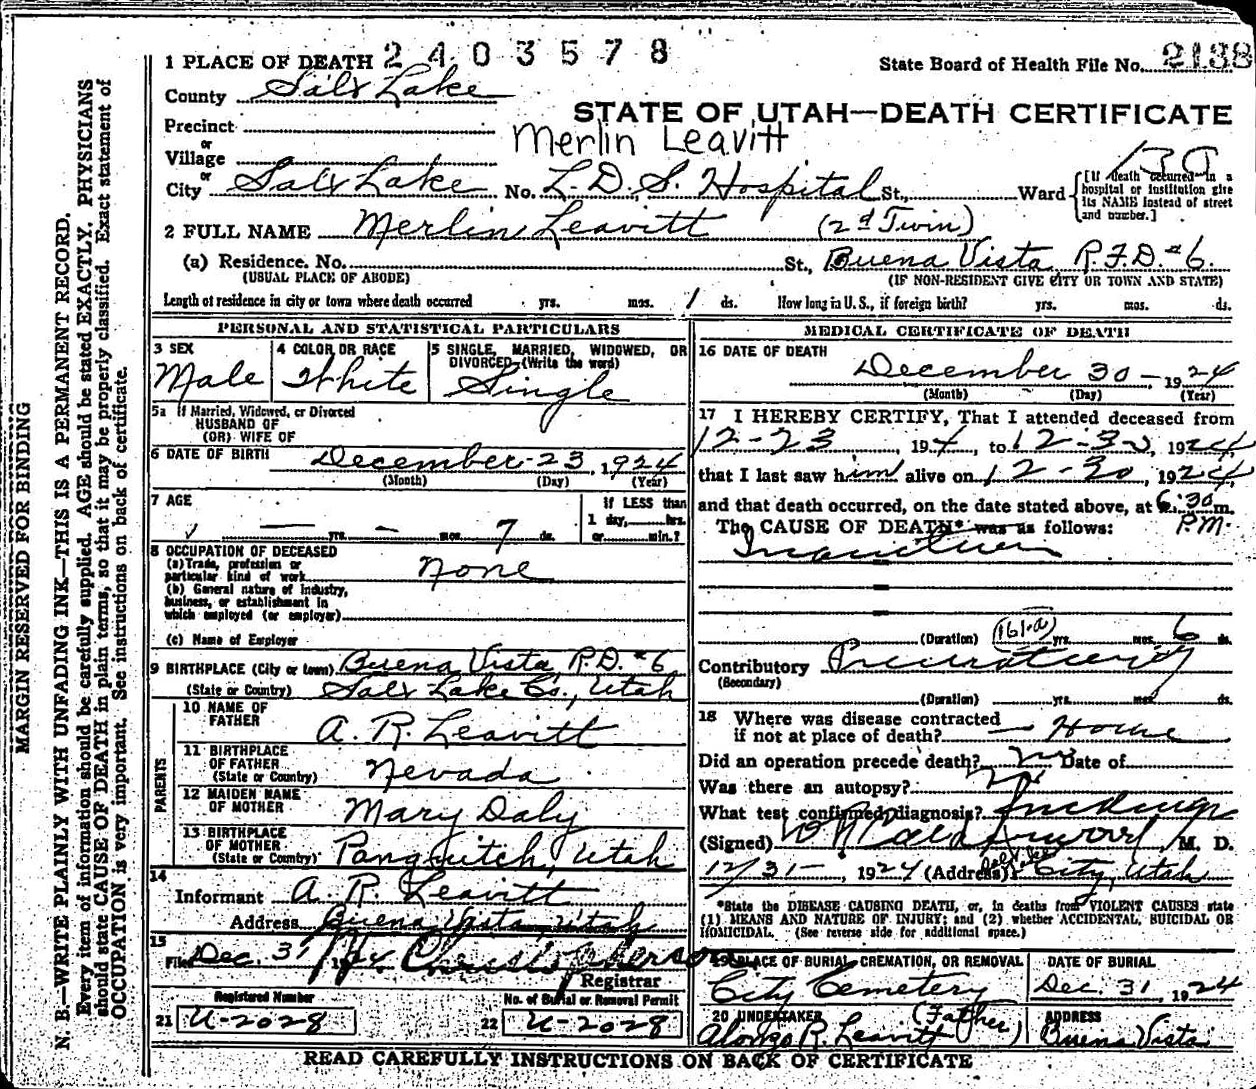 MARGIN RESERVED FOR BINDING
N. B.—WRITE PLAINLY WITH UNFADING INK—THIS IS A PERMANENT RECORD.
Every item of information should be carefully supplied. AGE should be stated EXACTLY. PHYSICIANS
should state CAUSE OF DEATH in plain terms, so that it may be properly classified. Exact statement of
OCCUPATION is very important. See instructions on back of certificate.
1 PLACE OF DEATH 2403578
State Board of Health File No. 2138
County Salt Lake
STATE OF UTAH—DEATH CERTIFICATE
Precinct
Merlin Leavitt
or
Village
or
City Salt Lake No. L.D.S. Hospital St., Ward
[If death occurred in a
hospital or institution give
its NAME instead of street
and number.]
2 FULL NAME Merlin Leavitt (2d Twin)
(a) Residence. No. St., Buena Vista R.F.D. #6.
(USUAL PLACE OF ABODE) (IF NON-RESIDENT GIVE CITY OR TOWN AND STATE)
Length of residence in city or town where death occurred yrs. mos. 1 ds. How long in U. S., if foreign birth? yrs. mos. ds.
PERSONAL AND STATISTICAL PARTICULARS
3 SEX
Male
4 COLOR OR RACE
White
5 SINGLE, MARRIED, WIDOWED, OR
DIVORCED (Write the word)
Single
5a If Married, Widowed, or Divorced
HUSBAND OF
(OR) WIFE OF
6 DATE OF BIRTH December 23, 1924
(Month) (Day) (Year)
7 AGE
If LESS than
1 day, hrs.
— yrs. — mos. 7 ds. or min.?
8 OCCUPATION OF DECEASED
(a) Trade, profession or
particular kind of work None
(b) General nature of Industry,
business, or establishment in
which employed (or employer)
(c) Name of Employer
9 BIRTHPLACE (City or town) Buena Vista R.D. #6
(State or Country) Salt Lake Co., Utah
PARENTS
10 NAME OF
FATHER A. R. Leavitt
11 BIRTHPLACE
OF FATHER
(State or Country) Nevada
12 MAIDEN NAME
OF MOTHER Mary Daly
13 BIRTHPLACE
OF MOTHER
(State or Country) Panguitch, Utah
14
Informant A. R. Leavitt
Address Buena Vista, Utah
15
Filed Dec. 31 1924 Christopherson
Registrar
Registered Number
21 U-2028
No. of Burial or Removal Permit
22 U-2028
MEDICAL CERTIFICATE OF DEATH
16 DATE OF DEATH
December 30 - 1924
(Month) (Day) (Year)
17 I HEREBY CERTIFY, That I attended deceased from
12-23, 1924, to 12-30, 1924
that I last saw him alive on 12-30, 1924,
and that death occurred, on the date stated above, at 6:30 m.
P.M.
The CAUSE OF DEATH* was as follows:
Inanition
(Duration) (161-a) yrs. mos. 6 ds.
Contributory Prematurity
(Secondary)
(Duration) yrs. mos. ds.
18 Where was disease contracted
if not at place of death? — Home
Did an operation precede death? no Date of
Was there an autopsy? no
What test confirmed diagnosis? findings
(Signed) M. D.
12/31-, 1924 (Address) Salt Lake City, Utah
*State the DISEASE CAUSING DEATH, or, in deaths from VIOLENT CAUSES state
(1) MEANS AND NATURE OF INJURY; and (2) whether ACCIDENTAL, SUICIDAL OR
HOMICIDAL. (See reverse side for additional space.)
19 PLACE OF BURIAL, CREMATION, OR REMOVAL
City Cemetery
DATE OF BURIAL
Dec. 31, 1924
20 UNDERTAKER (Father)
Alonzo R. Leavitt
ADDRESS
Buena Vista
READ CAREFULLY INSTRUCTIONS ON BACK OF CERTIFICATE